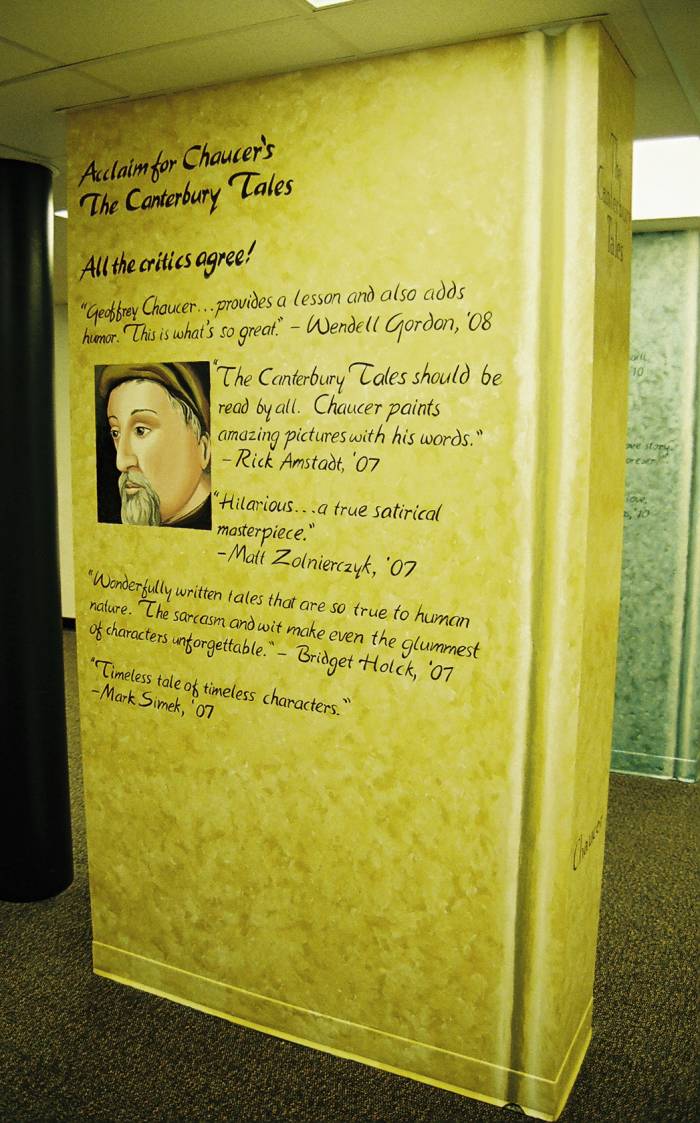 Acclaim for Chaucer's
The Canterbury Tales
All the critics agree!
"Geoffrey Chaucer...provides a lesson and also adds
humor. This is what's so great." - Wendell Gordon, '08
"The Canterbury Tales should be
read by all. Chaucer paints
amazing pictures with his words."
-Rick Amstadt, '07
"Hilarious...a true satirical
masterpiece."
-Matt Zolnierczyk, '07
"Wonderfully written tales that are so true to human
nature. The sarcasm and wit make even the glummest
of characters unforgettable." - Bridget Holck, '07
"Timeless tale of timeless characters."
-Mark Simek, '07
The
Canterbury
Tales
Chaucer
'10
love story.
'10